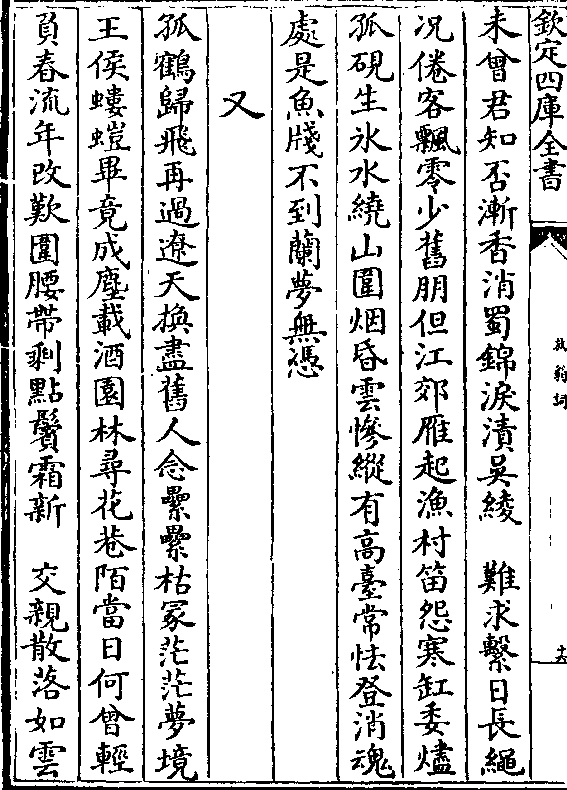 欽定四庫全書
未曾君知否漸香消蜀錦淚漬吳綾　難求繫日長繩
况倦客飄零少舊朋但江郊雁起漁村笛怨寒缸委燼
孤硯生氷水繞山圍烟昏雲慘縱有高臺常怯登消魂
處是魚牋不到蘭夢無憑
又
孤鶴歸飛再過遼天換盡舊人念纍纍枯冢茫茫夢境
王侯螻螘畢竟成塵載酒園林尋花巷陌當日何曾輕
負春流年改歎圍腰帶剩點鬢霜新　交親散落如雲
放翁詞
十六